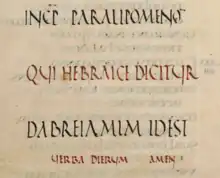 INCP PARALIPOMENON
QUI HEBRAICE DICITUR
DABREIAMIM ID EST
UERBA DIERUM AMEN